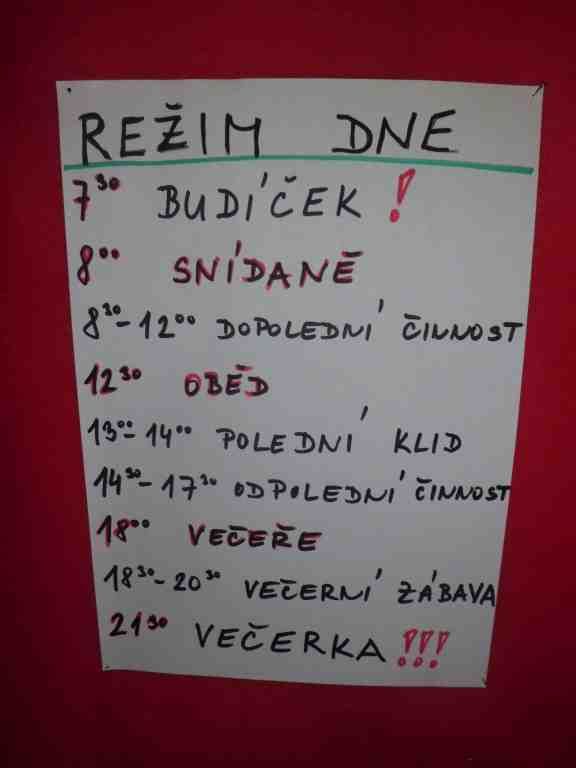 REŽIM DNE
7³⁰ BUDÍČEK !
8⁰⁰ SNÍDANĚ
8³⁰-12⁰⁰ DOPOLEDNÍ ČINNOST
12³⁰ OBĚD
13⁰⁰-14⁰⁰ POLEDNÍ KLID
14³⁰-17³⁰ ODPOLEDNÍ ČINNOST
18⁰⁰ VEČEŘE
18³⁰-20³⁰ VEČERNÍ ZÁBAVA
21³⁰ VEČERKA !!!